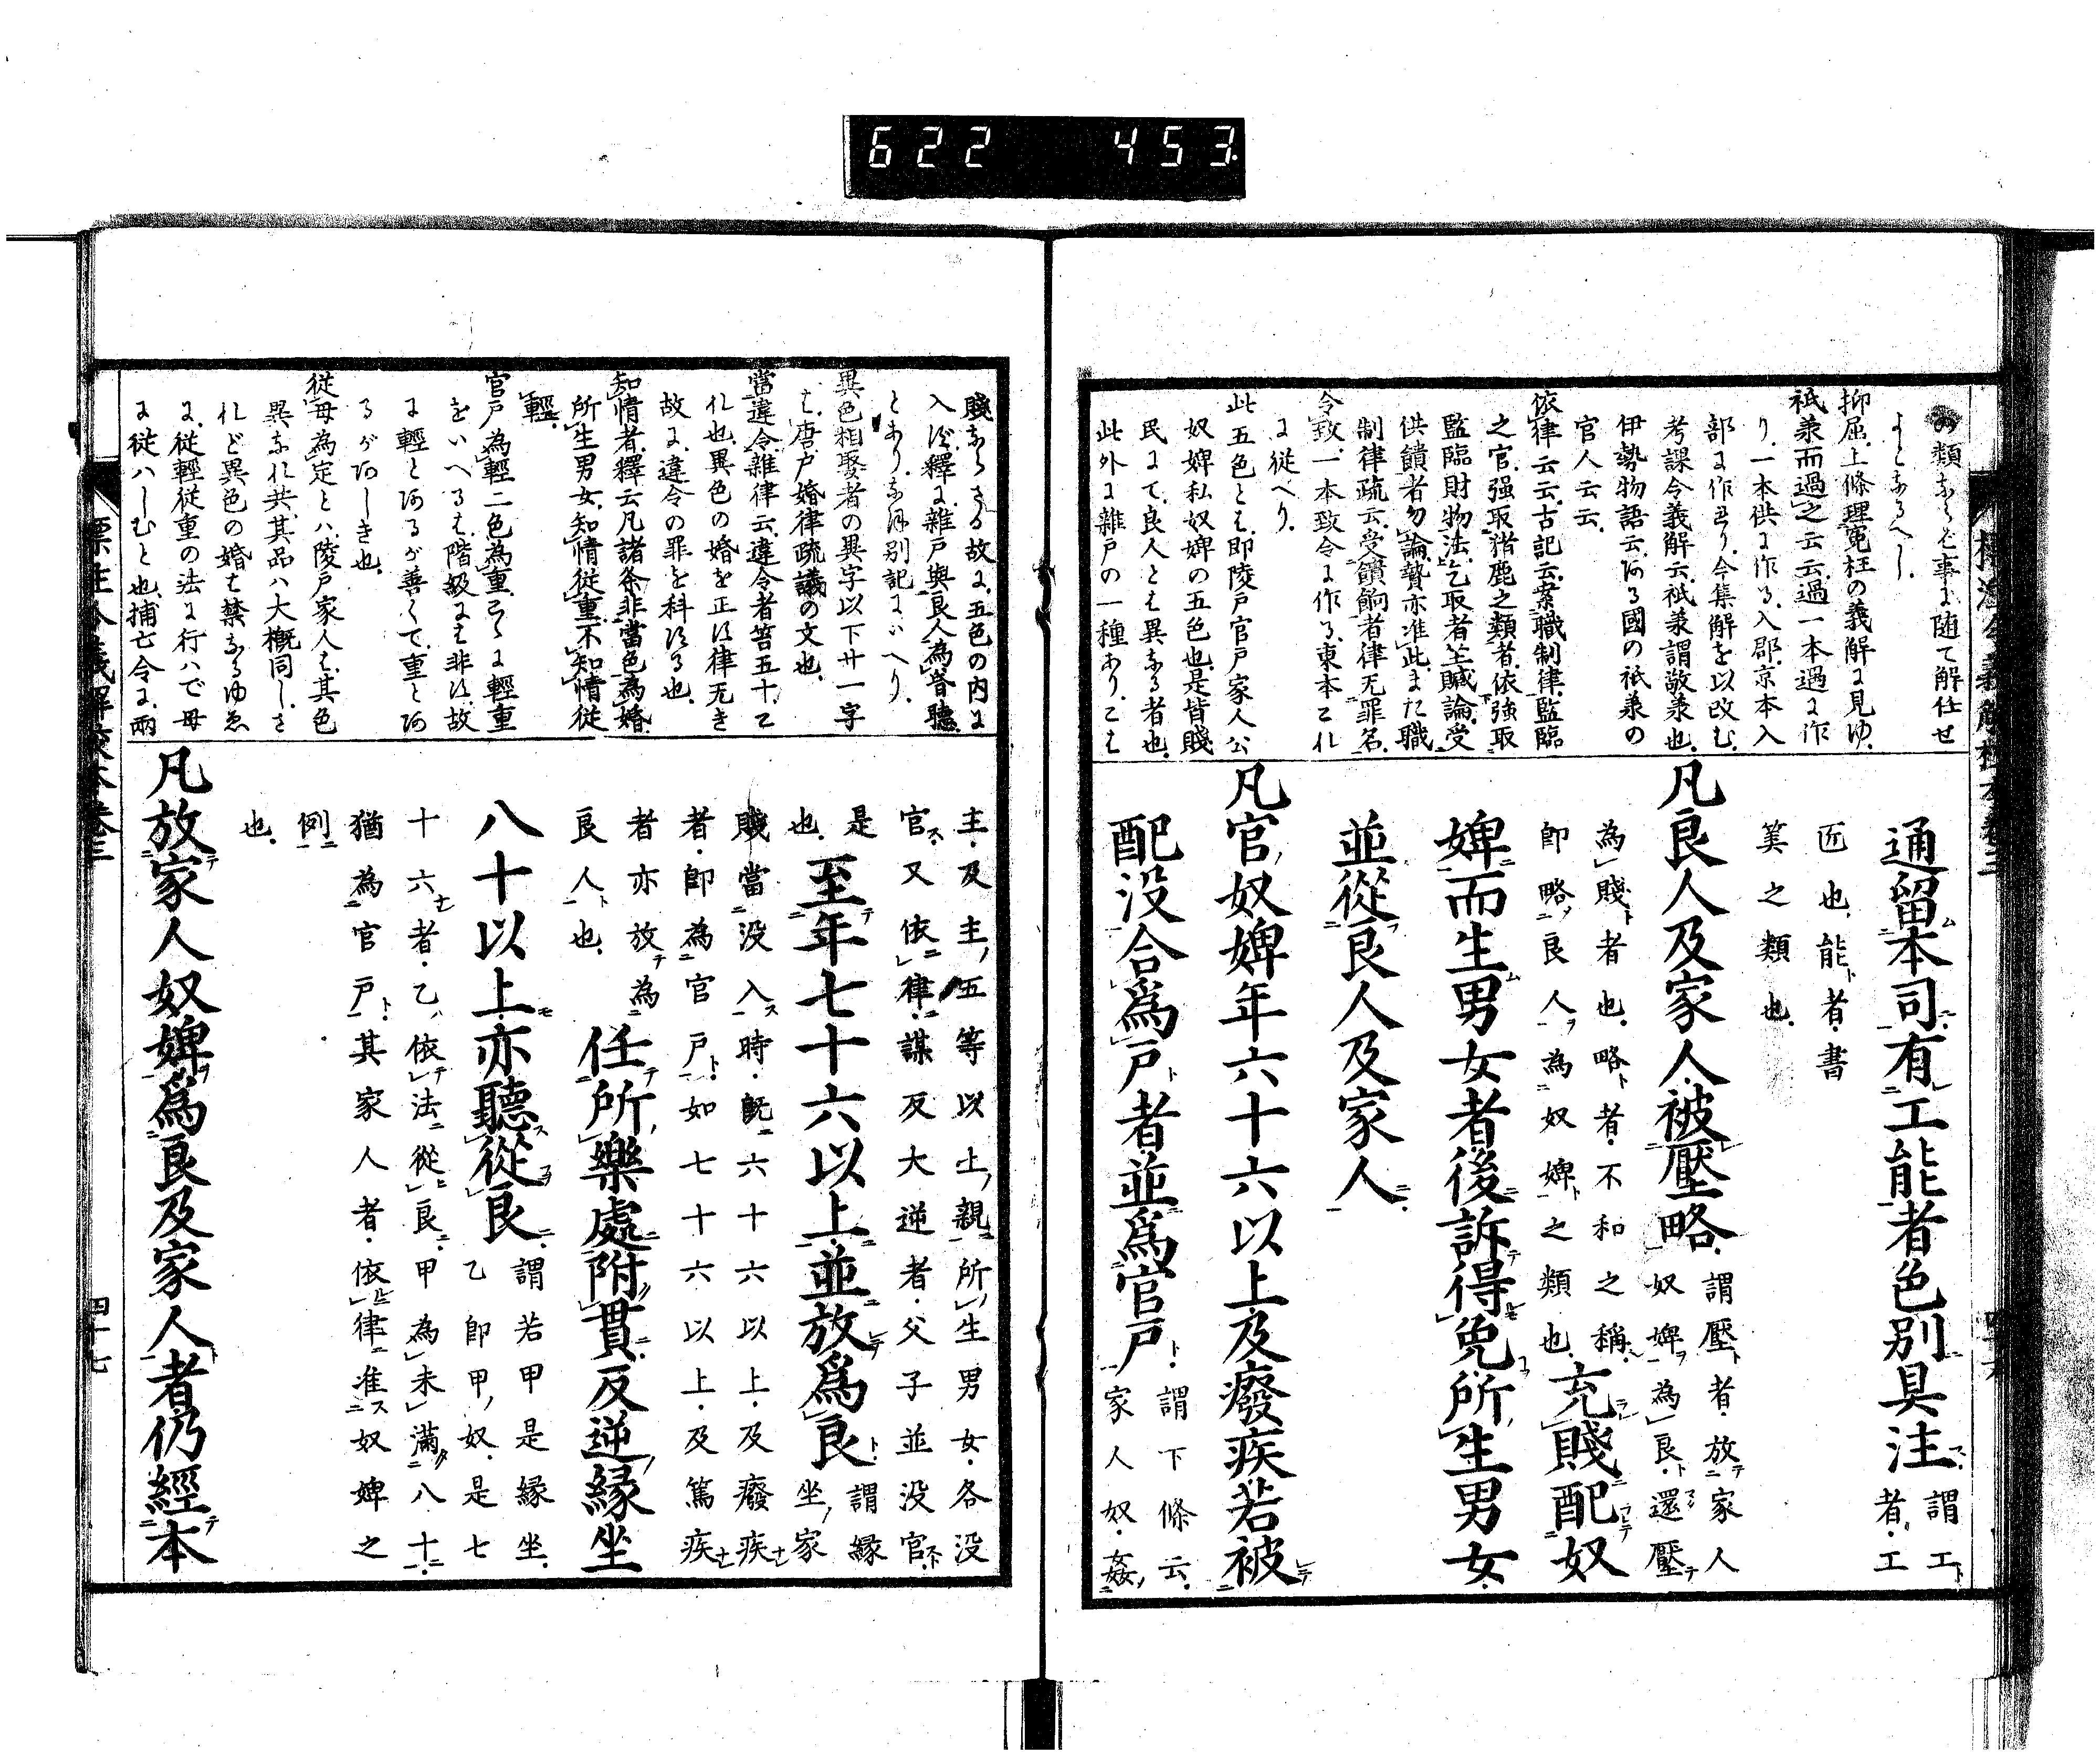 622 453
の類ならバ事に随て解仕せ
よとなるへし
抑屈.上條理寃枉の義解に見ゆ.
祇兼而過之云云.過一本過に作
り.一本供に作る.入郡.京本入
部に作れり.今集解を以改む.
考課令義解云.祇兼謂敬兼也.
伊勢物語云.ある國の祇兼の
官人云云.
依律云云.古記云.案職制律.監臨
之官.强取猪鹿之類者.依强取
監臨財物法.乞取者坐贓論.受
供饋者勿論.贄亦准此.また職
制律疏云.受饋餉者律无罪名.
令致.一本致令に作る.東本これ
に従へり.
此五色とは.即陵戸官戸家人公
奴婢私奴婢の五色也.是皆賤
民にて.良人とは異なる者也.
此外に雜戸の一種あり.こは
通留本司有工能者色別具注
謂工
者.工
匠也.能者.書
筭之類也.
凡良人及家人被壓略.
謂壓者.放家人
奴婢為良.還壓
為賤者也.略者.不和之稱.
即略良人為奴婢之類也.
充賤配奴
婢而生男女者後訴得免所生男女.
並從良人及家人.
凡官奴婢年六十六以上及癈疾若被
配没合爲戸者並爲官戸
謂下條云.
家人奴.姦
四十六
賤ならざる故に.五色の内に
入ず.釋に.雜戸與良人為昏聽
とあり.なほ別記にいへり.
異色相娶者の異字以下廿一字
は.唐戸婚律疏議の文也.
當違令.雜律云.違令者笞五十.こ
れ也.異色の婚を正す律无き
故に.違令の罪を科する也.
知情者.釋云凡諸条非當色為婚
所生男女.知情從重不知情從
輕.
官戸為輕.二色為重.こゝに輕重
をいへるは.階級にはあらず.故
に輕とあるが善くて.重とあ
るがあしき也.
從母為定とハ.陵戸家人は.其色
異なれ共.其品ハ大概同し.さ
れど異色の婚は禁なるゆゑ
に.從輕從重の法に行ハで母
に從ハしむと也.捕亡令に.兩
主.及主五等以上親所生男女.各没
官.又依律.謀反大逆者.父子並没官.
是
也.
至年七十六以上並放爲良
謂縁
坐家
賤當没入時.既六十六以上.及癈疾
者.即為官戸.如七十六以上.及篤疾
者亦放為
良人也.
任所樂處附貫.反逆縁坐
八十以上.亦聽從良
謂若甲是縁坐.
乙即甲奴.是七
十六者.乙依法從良.甲為未滿八十.
猶為官戸.其家人者.依律准奴婢之
例
也.
凡放家人奴婢爲良及家人者仍經本
標注令義解校本巻三
四十七